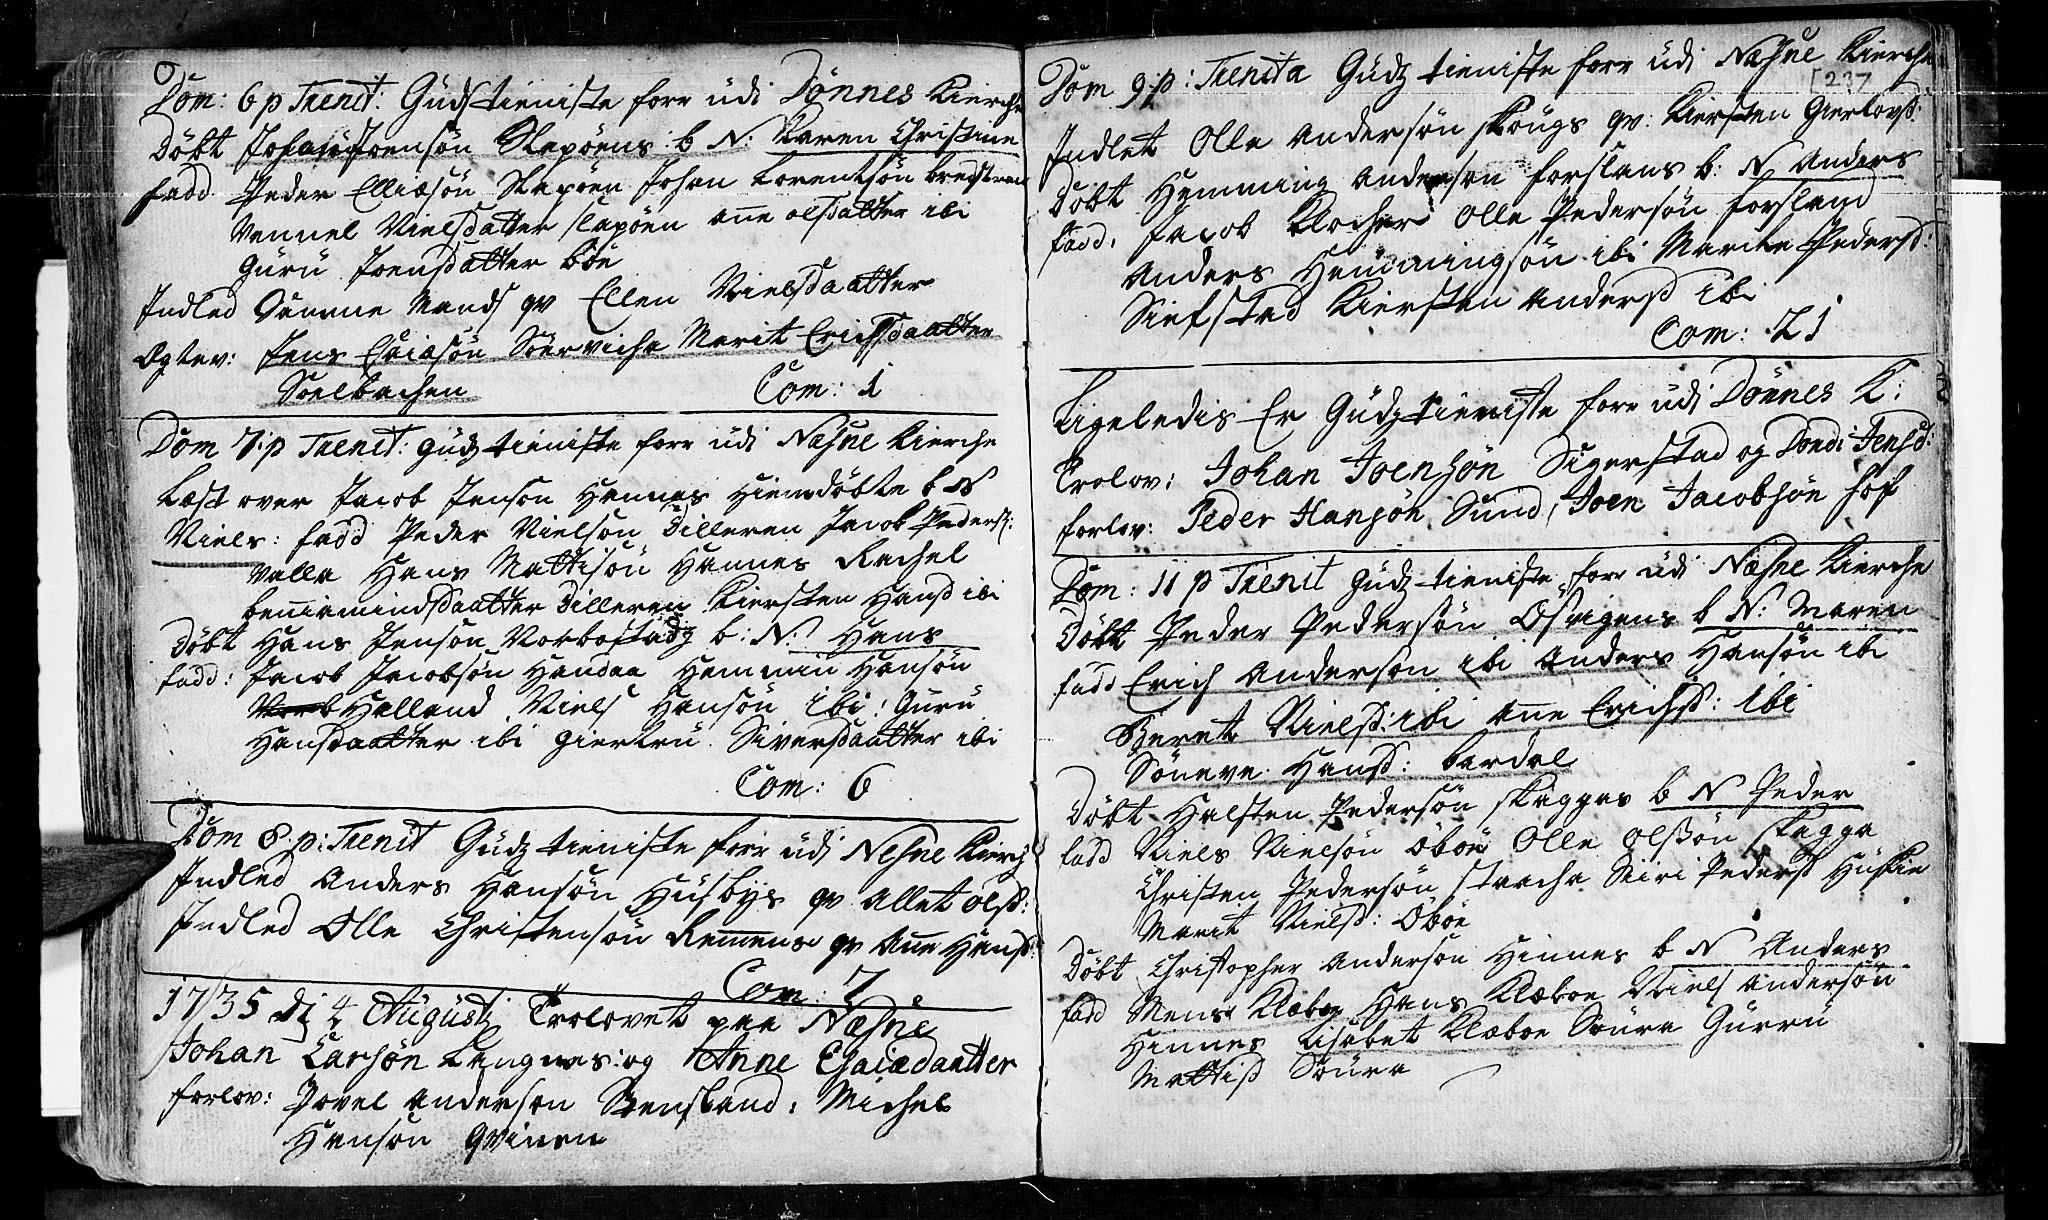 Dom: 6 p Trenit: Gudstieniste forr udi Dönnes Kierche
Döbt Johan Joensön Slapöens b N: Karen Christine
fadd Peder Elliæsön Slapöen Johan Lorentsön bredstrand
Vennel Nielsdatter slapöen Ane olsdatter ibi
Guru Joensdatter böe
Indled Sennne Mands qv Ellen Nielsdaatter
Ægtev: Jens Eriæsön Söervicha Marit Erichsdaatter
Soelbachen Com: 1
Dom 7: p Trenit: gudz tieniste forr udi Næsne Kierche
Læst over Jacob Jenson Hannes Hiemdöbte b N
Niels: fadd Peder Nielsön Dilleren Jacob Peders:
Valla Hans Mattisön Hannes Rachel
beniamindsdaatter Dilleren Kiersten Hansd ibi
Döbt Hans Jensön Vorbostadz b: N: Hans
fadd: Jacob Jacobsön Handaa Hemmin Hansön
Halland Niels Hansön ibi: Guru
Hansdaatter ibi giertru Siversdaatter ibi
Com: 6
Dom 8: p: Trenit Gudz tieniste forr udi Nesne Kierch
Indled Anders Hansön Husbys qv Allet olsd:
Indled Olle Christensön Remmens qv Ane Hansd:
Com: 7
1735 dj 4 Augustj Trolovet paa Næsne
Johan Larsön Langnes: og Anne Esaiædaatter
forlov: Povel Anderson Stensland: Michel
Hansön qvinen
237
Dom 9: p: Trenita Gudz tieniste forr udi Næsne Kierche
Indlet Olle Andersön skougs qv: Kiersten Gierlovsd:
Döbt Hemming Anderson forslans b: N Anders
fadd: Jacob Klocher Olle Pedersön forsland
Anders Hemmingsön ibi Marite Pedersd:
Siefstad Kiersten Andersd ibi
Com: 21
Ligeledis Er Gudz tieniste forr udi Dönnes K:
Trolov: Johan Joensön Sigerstad og Dordi Jensd:
forlov: Peder Hansön Sund, Joen Jacobsön Hof
Dom: 11 p Trenit Gudz tieniste forr udi Næsne Kierche
Döbt Peder Pedersön Ösvigens b N: Maren
fadd Erich Anderson ibi Anders Hansön ibi
Beret Nielsd: ibi Ane Erichsd: ibi
Söneve Hansd: bardal
Döbt Halsten Pedersön skaggas b N Peder
fadd Niels Nielsön öböe Olle olssön skagga
Christen Pedersön stracha Siri Pedersd Huskie
Marit Nielsd: Öböe
Döbt Christopher Anderson Hinnes b N Anders
fadd Mens Klæboe Hans Klæboe Niels Andersön
Hinnes Lisabet Klæboe Soura Gurru
Mattisd Soura